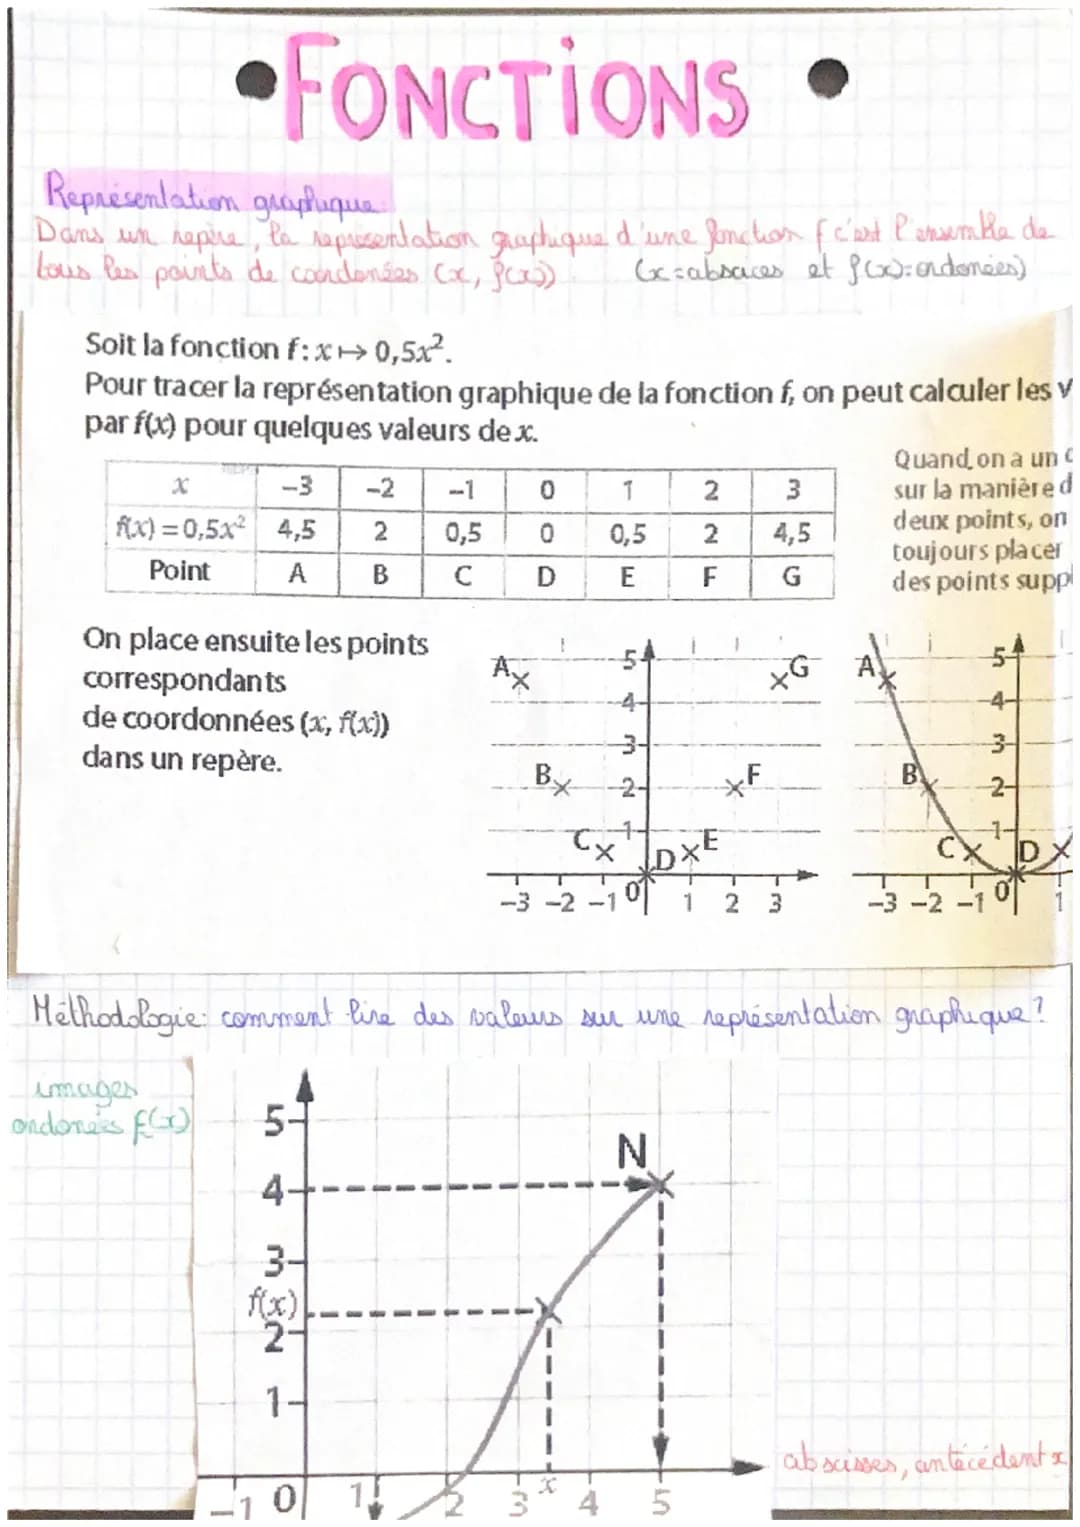 •FONCTIONS•
Représentation graphique:
Dans un repère, la représentation graphique d'une fonction f c'est l'ensemble de
tous les points de coordonées (x, f(x)) (x=abscices et f(x)=ordonées)
Soit la fonction f: x ↦ 0,5x².
Pour tracer la représentation graphique de la fonction f, on peut calculer les v
par f(x) pour quelques valeurs de x.
Quand on a un d
sur la manière d
deux points, on
toujours placer
des points suppl
x -3 -2 -1 0 1 2 3
f(x) = 0,5x² 4,5 2 0,5 0 0,5 2 4,5
Point A B C D E F G
On place ensuite les points
correspondants
de coordonnées (x, f(x))
dans un repère.
A 5 G
4
3
B 2 F
C 1 D E
-3 -2 -1 0 1 2 3
A 5
4
3
B 2
C 1 D
-3 -2 -1 0 1
Méthodologie: comment lire des valeurs sur une représentation graphique?
images
ordonées f(x)
5
N
4
3
f(x)
2
1
-1 0 1 2 3 x 4 5
abscisses, antécédent x